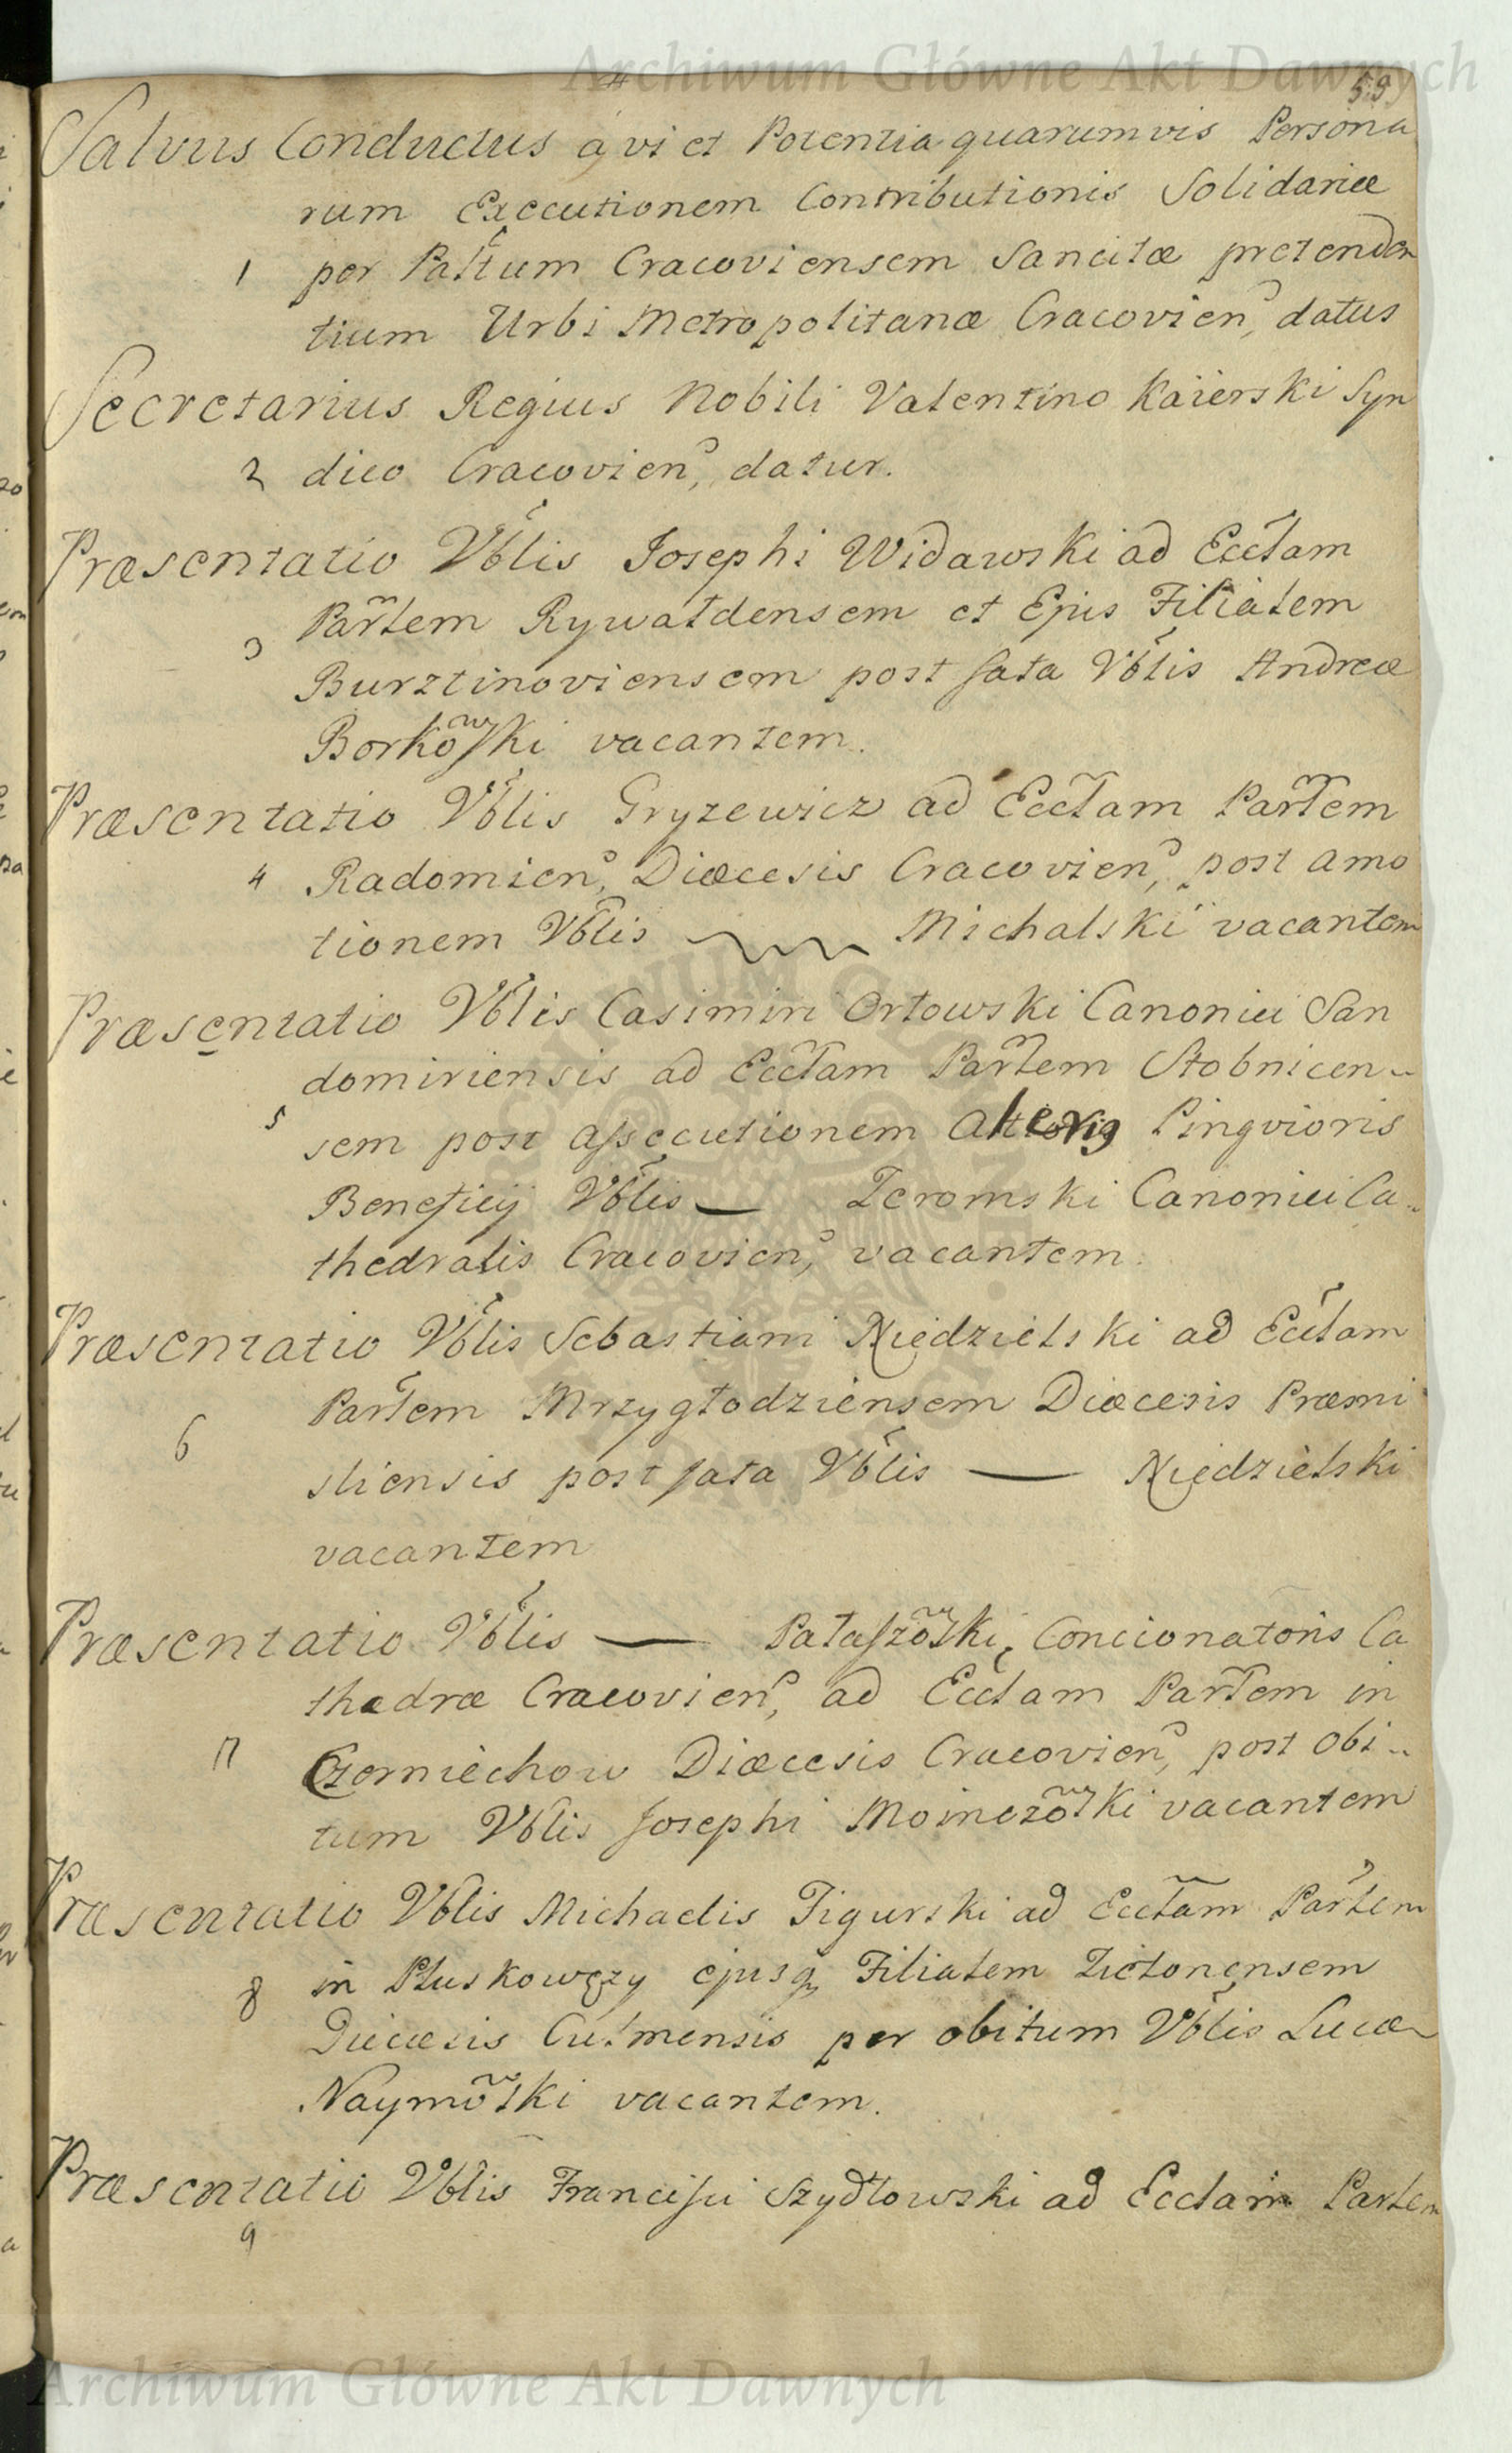 Archiwum Główne Akt Dawnych
59
Salvus Conductus á vi et Potentia quarumvis Persona
rum Executionem Contributionis Solidariæ
1 per Palŧum Cracoviensem Sancitæ pretenden
tium Urbi Metropolitanæ Cracovien, datus
Secretarius Regius Nobili Valentino Kaierski Syn
2 dico Cracovien, datur.
Præsentatio Vblis Josephi Widawski ad Ecclam
Parlem Rywałdensem et Ejus Filialem
3
Burztinoviensem post fata Vblis Andreæ
Borkowski vacantem.
Præsentatio Vblis Gryzewicz ad Ecclam Parlem
4 Radomien, Diæcesis Cracovien, post amo
tionem Vblis Michalski vacantem
Præsentatio Vblis Casimiri Orłowski Canonici San
domiriensis ad Ecclam Parlem Stobnicen-
5
sem post assecutionem alterius Pingvioris
Beneficij Vblis — Zeromski Canonici Ca-
thedralis Cracovien, vacantem.
Præsentatio Vblis Sebastiani Niedzielski ad Ecclam
Parlem Mrzygłodziensem Diæcesis Præmi
6
sliensis post fata Vblis — Niedzielski
vacantem
Præsentatio Vblis — Pałaszowski, Concionatoris Ca
thedræ Cracovien, ad Ecclam Parlem in
7 Czerniechow Diæcesis Cracovien, post obi-
tum Vblis Josephi Moinczowski vacantem
Præsentatio Vblis Michaelis Figurski ad Ecclam Parlem
in Płuskowęzy ejusq, Filialem Zielonensem
8
Diæcesis Culmensis per obitum Vblis Lucæ
Naymowski vacantem.
Præsentatio Vblis Francisci Szydłowski ad Ecclam Parlem
9
Archiwum Główne Akt Dawnych